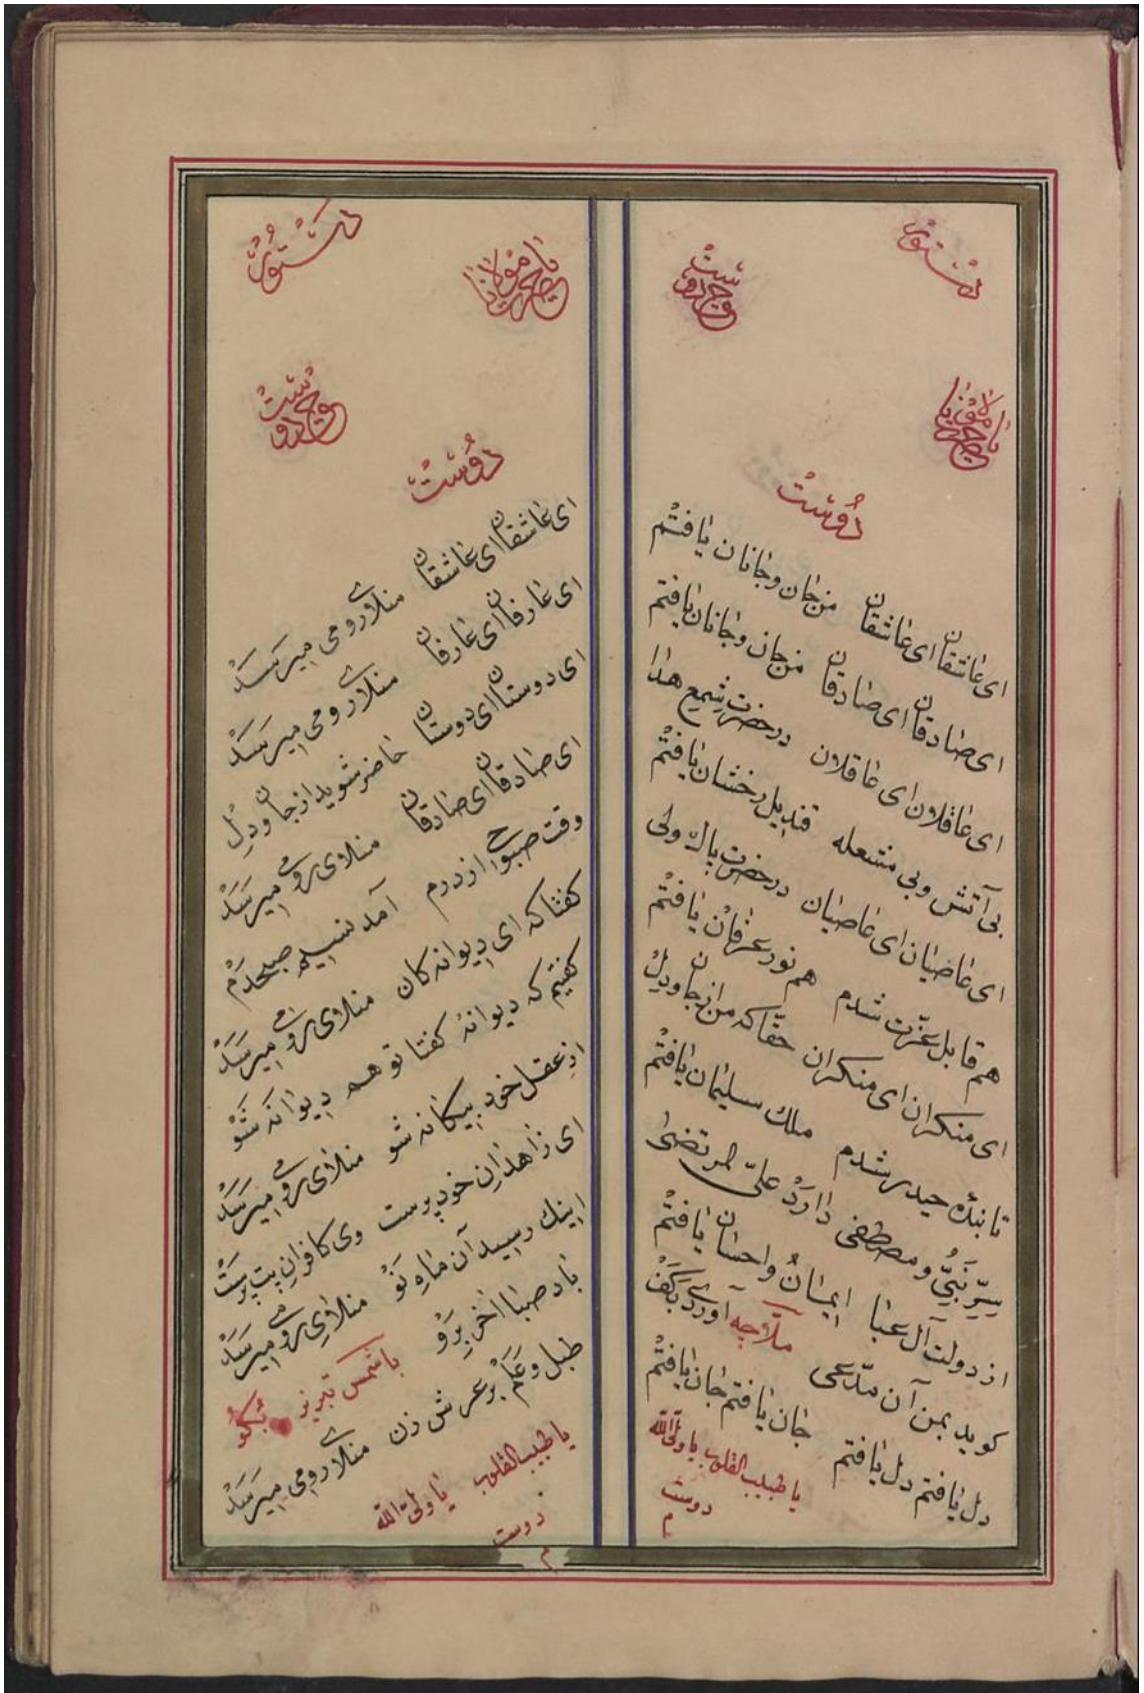 دستور
وجد دوست
یا حضرت مولانا
دوست
ای عاشقان ای عاشقان من جان و جانان یافتم
ای صادقان ای صادقان من جان و جانان یافتم
ای عاقلان ای عاقلان در حضرت شمع هدا
بی آتش و بی مشعله قندیل رخشان یافتم
ای عاصیان ای عاصیان در حضرت پاك ولی
هم قابل عزت شدم هم نور عرفان یافتم
ای منکران ای منکران حقا که من از جان و دل
تا بندۀ حیدر شدم ملك سلیمان یافتم
سر نبی و مصطفی دارد علی المرتضی
از دولت آل عبا ایمان و احسان یافتم
کوید بمن آن مدعی ملاچه آوردی بکف
دل یافتم دل یافتم جان یافتم جان یافتم
یا طبیب القلوب یا ولی الله
دوست
م
دستور
یا حضرت مولانا
وجد دوست
دوست
ای عاشقان ای عاشقان منلای رومی میرسد
ای عارفان ای عارفان منلای رومی میرسد
ای دوستان ای دوستان حاضر شوید از جان و دل
ای صادقان ای صادقان منلای رومی میرسد
وقت صبوح از درم آمد نسیم صبحدم
کفتا که ای دیوانه کان منلای رومی میرسد
کفتیم که دیوانۀ کفتا تو هم دیوانه شو
از عقل خود بیکانه شو منلای رومی میرسد
ای زاهدان خود پرست وی کافران بت پرست
اینك رسید آن ماه نو منلای رومی میرسد
باد صبا آخر برو با شمس تبریز بکو
طبل و علم بر عرش زن منلای رومی میرسد
یا طبیب القلوب یا ولی الله
دوست
م